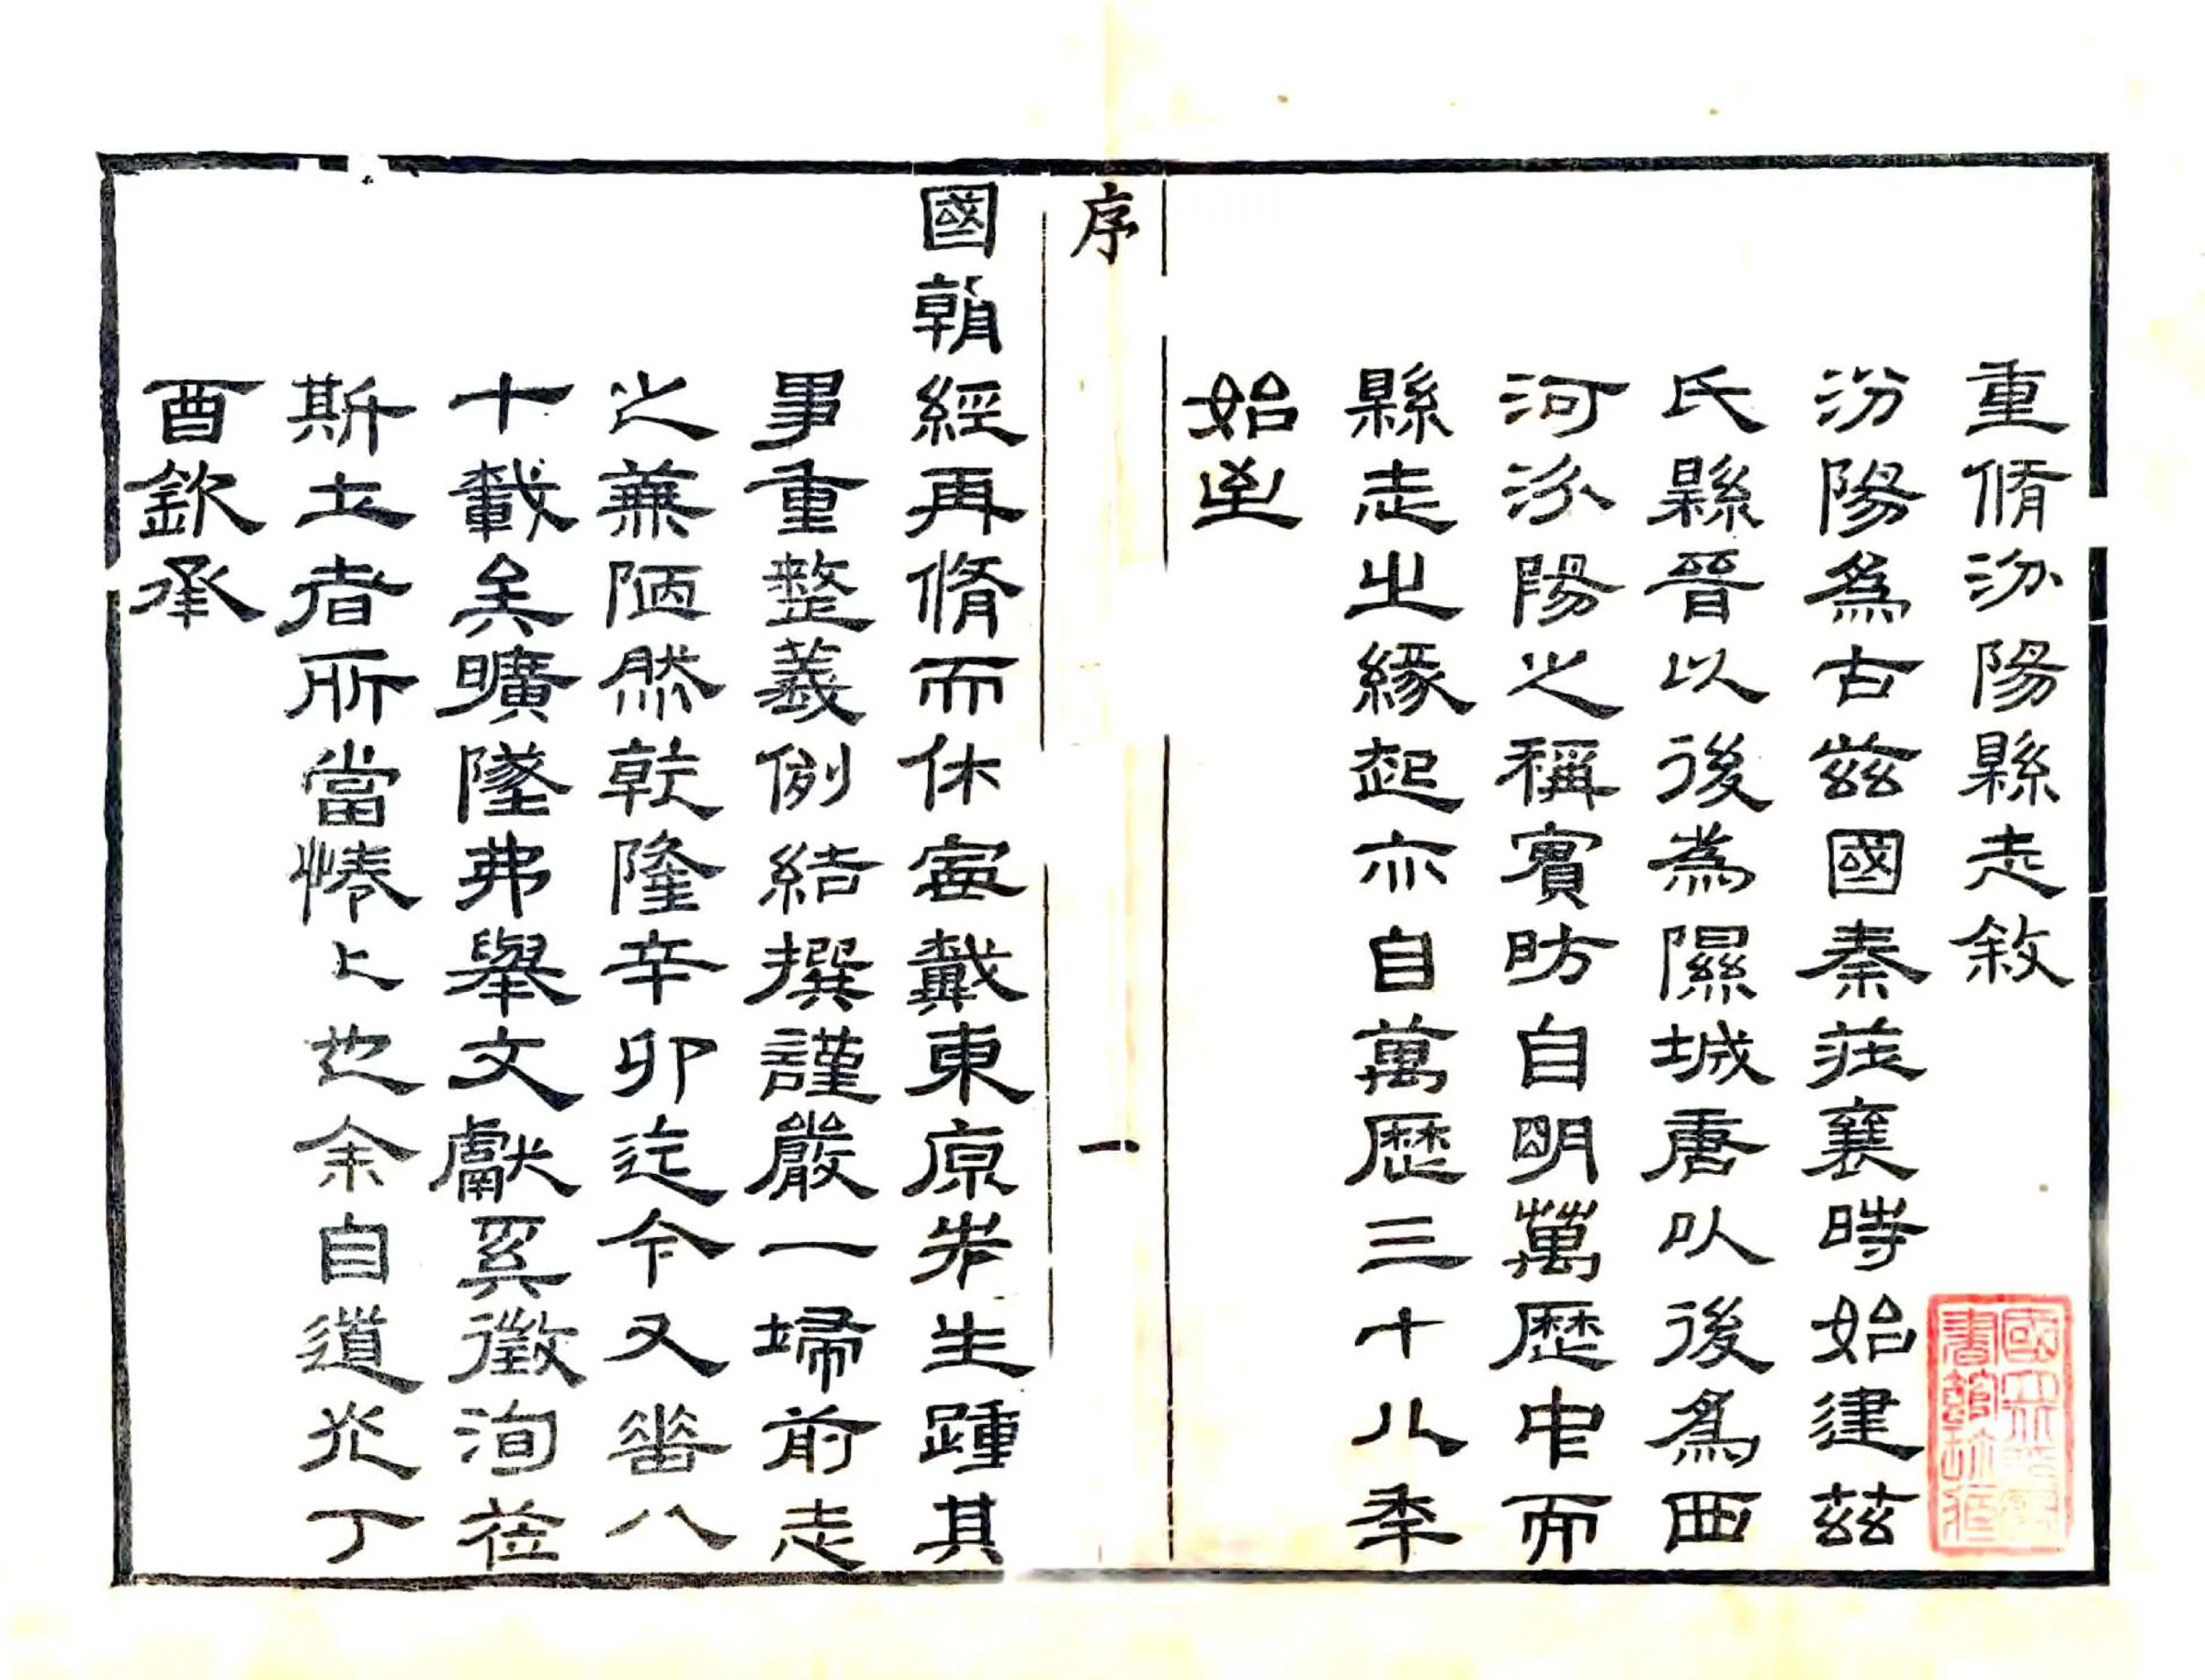 重脩汾陽縣志敘
汾陽為古茲國秦莊襄時始建茲
氏縣晉以後為隰城唐以後為西
河汾陽之稱實昉自明萬歷中而
縣志之緣起亦自萬歷三十八季
始迄
序
一
國朝經再脩而休寍戴東原先生踵其
事重整義例結撰謹嚴一埽前志
之蕪陋然乾隆辛卯迄今又畨八
十載矣曠墜弗舉文獻奚徵洵莅
斯土者所當惓上也余自道光丁
酉欽承
國立北平圖書館珍藏